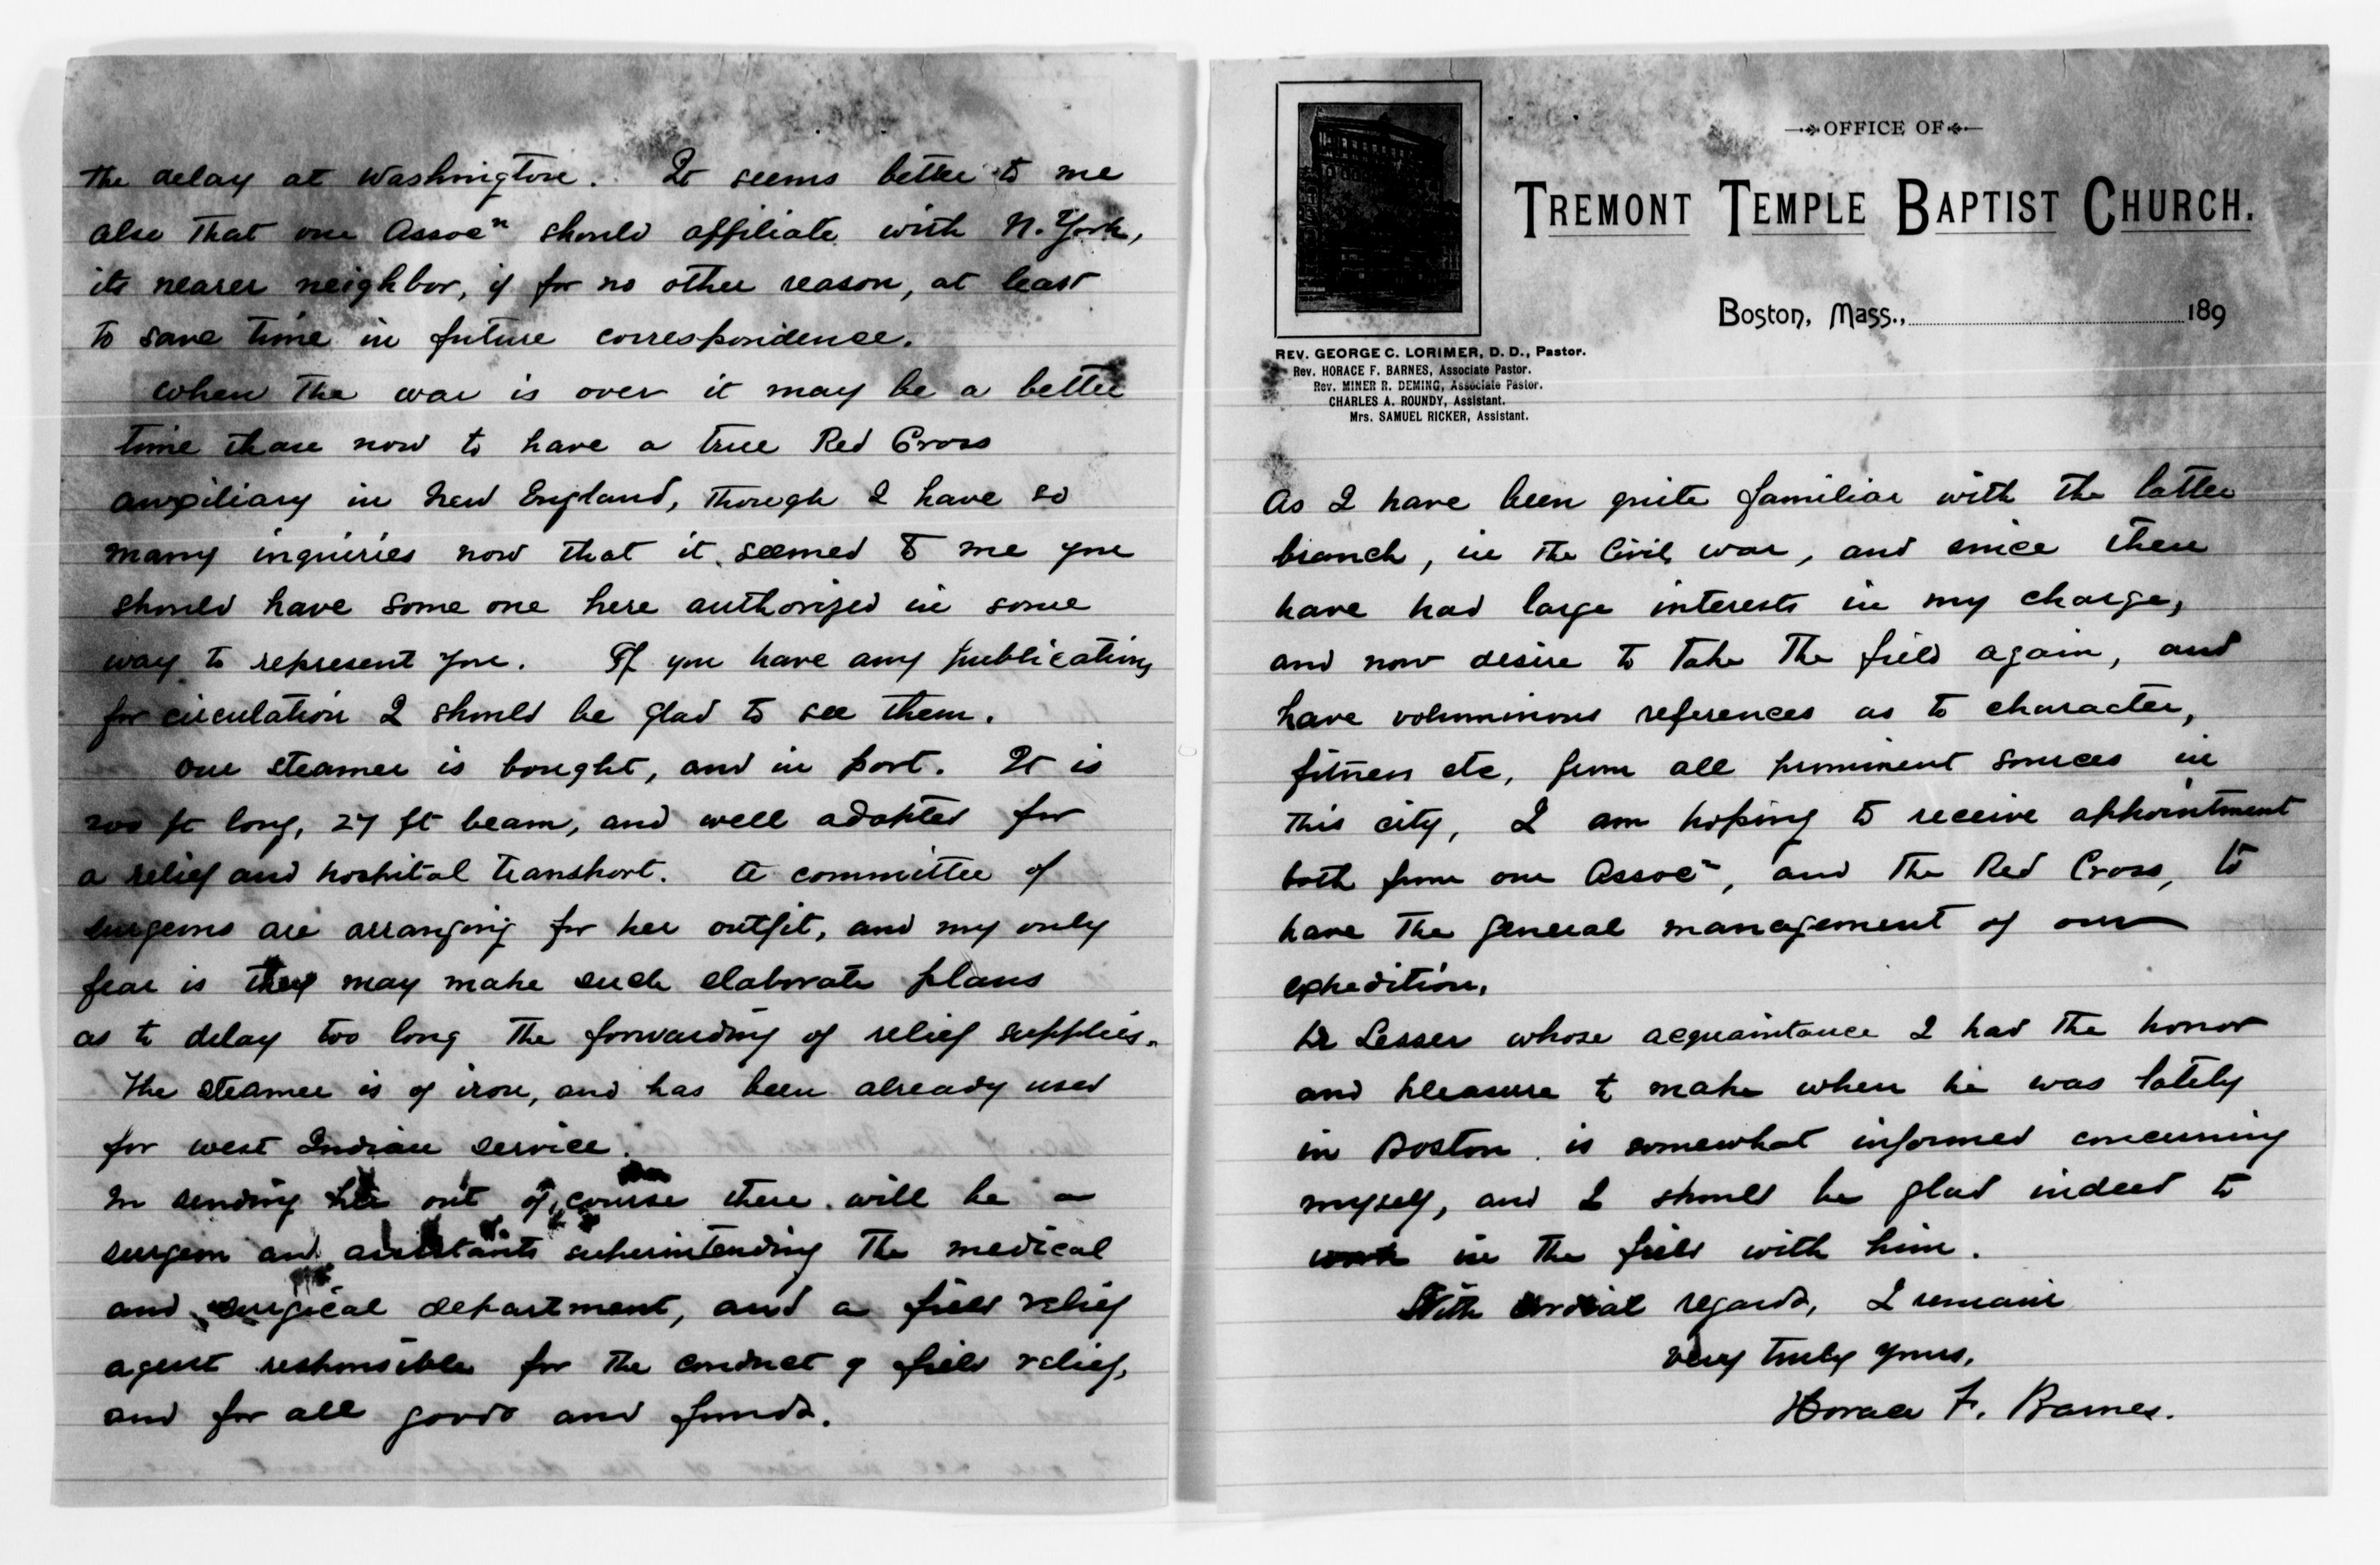 the delay at Washington. It seems better to me
also that our Assocn should affiliate with N. York,
its nearer neighbor, if for no other reason, at least
to save time in future correspondence.
When the war is over it may be a better
time than now to have a true Red Cross
auxiliary in New England, though I have so
many inquiries now that it seemed to me you
should have some one here authorized in some
way to represent you. If you have any publications
for circulation I should be glad to see them.
Our steamer is bought, and in port. It is
200 ft long, 27 ft beam, and well adapted for
a relief and hospital transport. A committee of
surgeons are arranging for her outfit, and my only
fear is they may make such elaborate plans
as to delay too long the forwarding of relief supplies.
The steamer is of iron, and has been already used
for West Indian service.
In sending her out of course there will be a
surgeon and assistants superintending the medical
and surgical department, and a field relief
agent responsible for the conduct of field relief,
and for all goods and funds.
OFFICE OF
TREMONT TEMPLE BAPTIST CHURCH.
Boston, Mass., 189
REV. GEORGE C. LORIMER, D. D., Pastor.
Rev. HORACE F. BARNES, Associate Pastor.
Rev. MINER R. DEMING, Associate Pastor.
CHARLES A. ROUNDY, Assistant.
Mrs. SAMUEL RICKER, Assistant.
As I have been quite familiar with the latter
branch, in the Civil war, and since then
have had large interests in my charge,
and now desire to take the field again, and
have voluminous references as to character,
fitness etc, from all prominent sources in
this city, I am hoping to receive appointment
both from our Assocn, and the Red Cross, to
have the general management of our
expedition.
Dr Lesser whose acquaintance I had the honor
and pleasure to make when he was lately
in Boston is somewhat informed concerning
myself, and I should be glad indeed to
work in the field with him.
With cordial regards, I remain
very truly yours,
Horace F. Barnes.